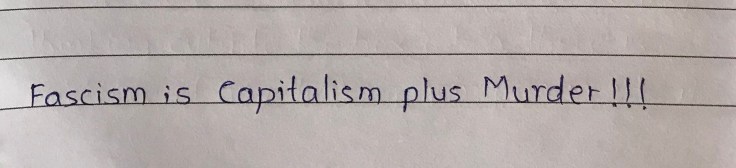 Fascism is Capitalism plus Murder!!!